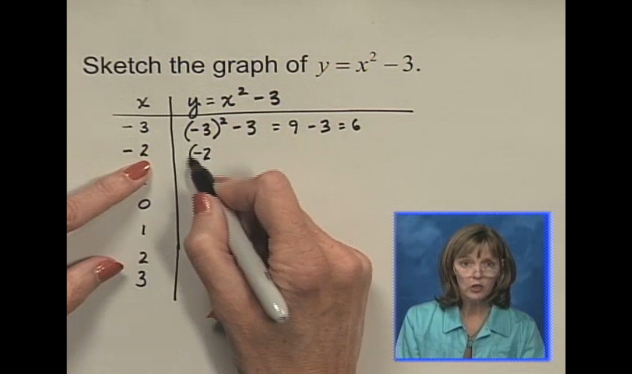 Sketch the graph of y = x² − 3.
x y = x² − 3
−3 (−3)² − 3 = 9 − 3 = 6
−2 (−2
0
1
2
3